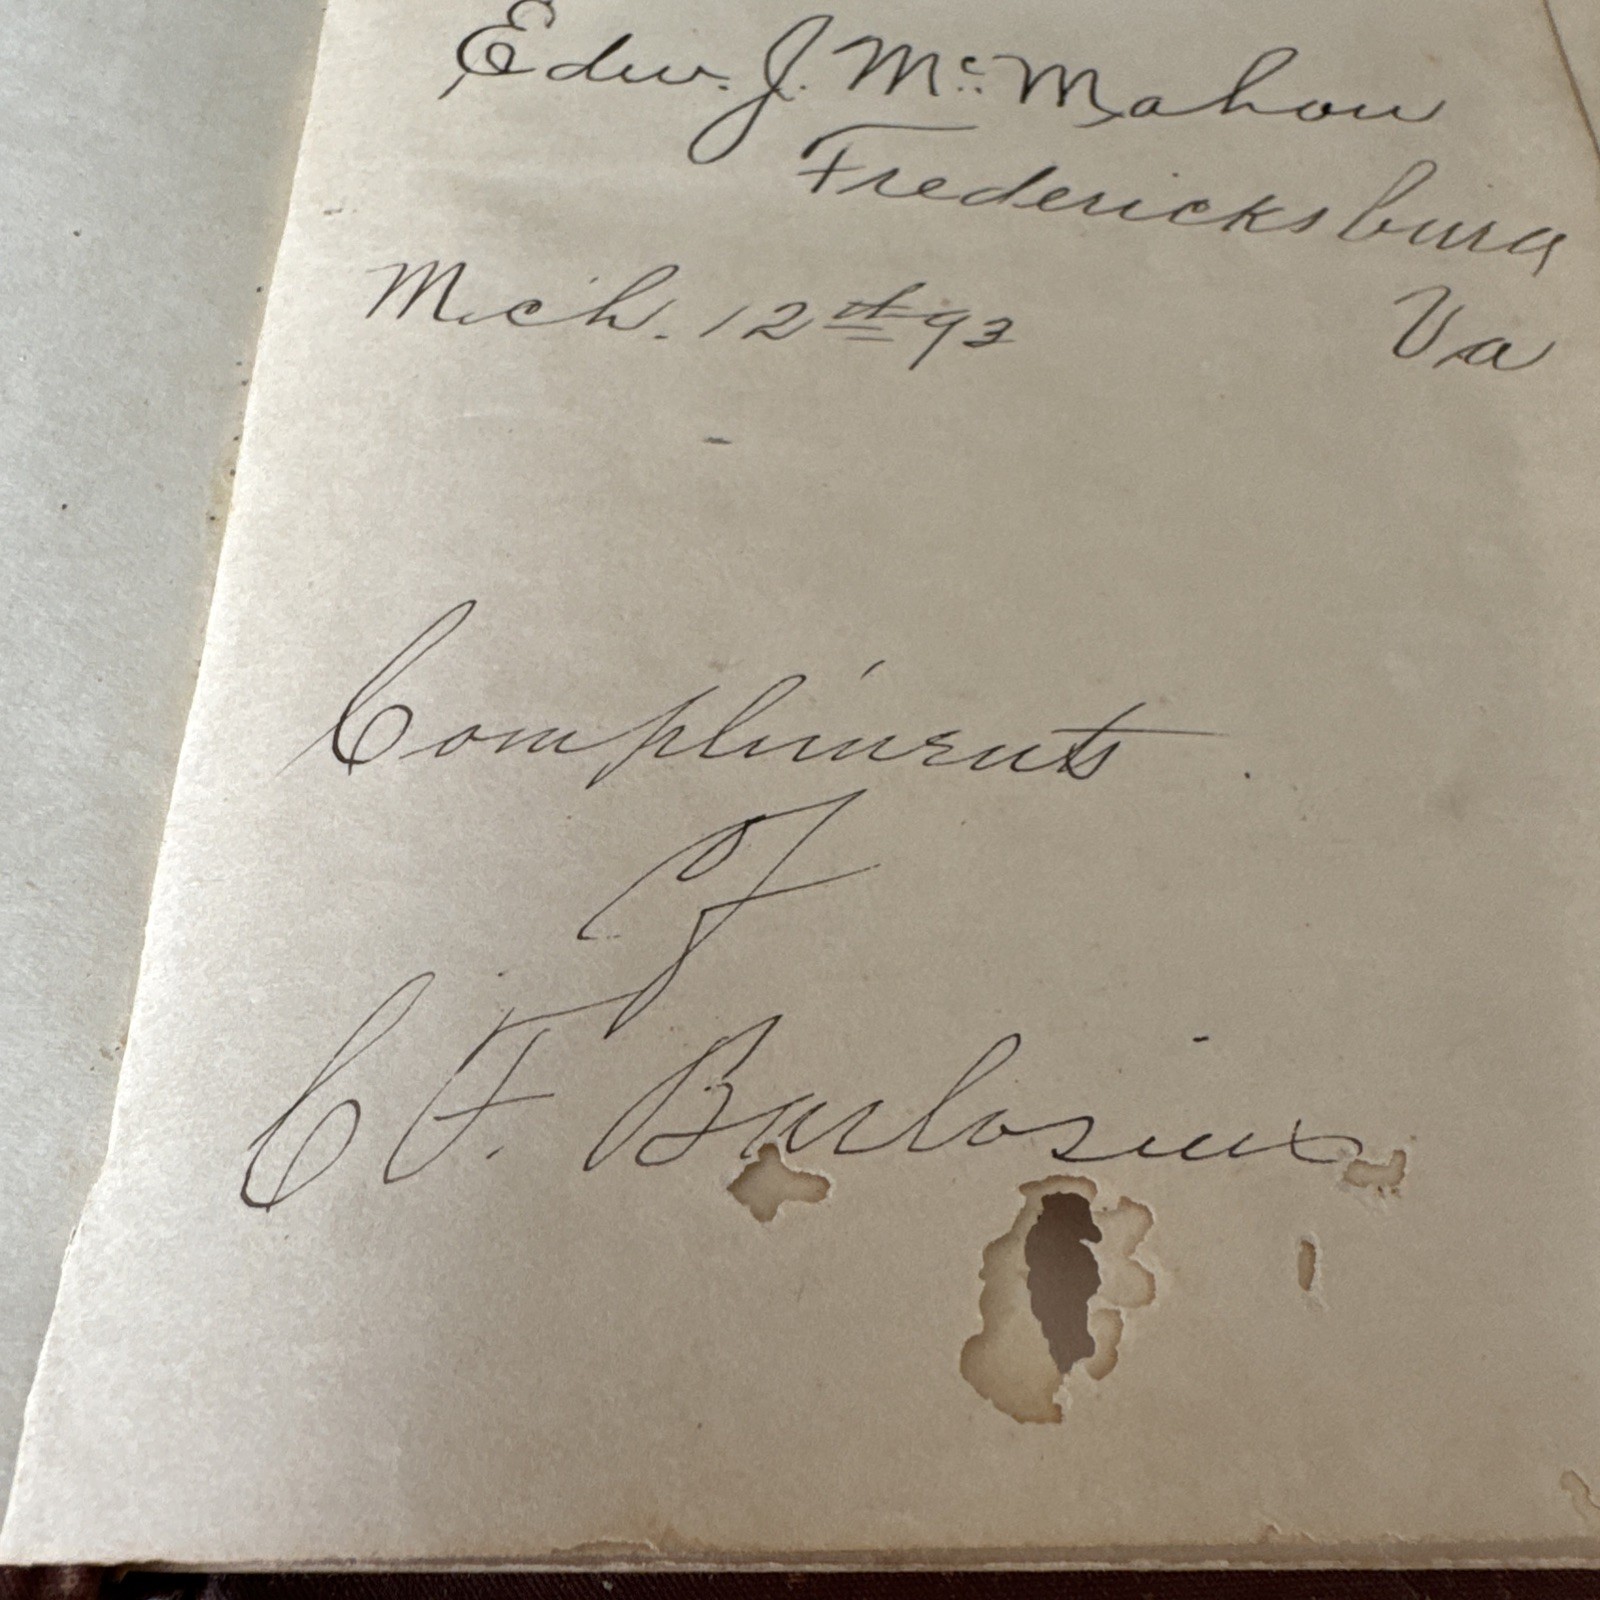 Edw. J. Mc. Mahon
Fredericksburg
Va
Mch. 12th 93
Compliments
of
C. F. Barlosius